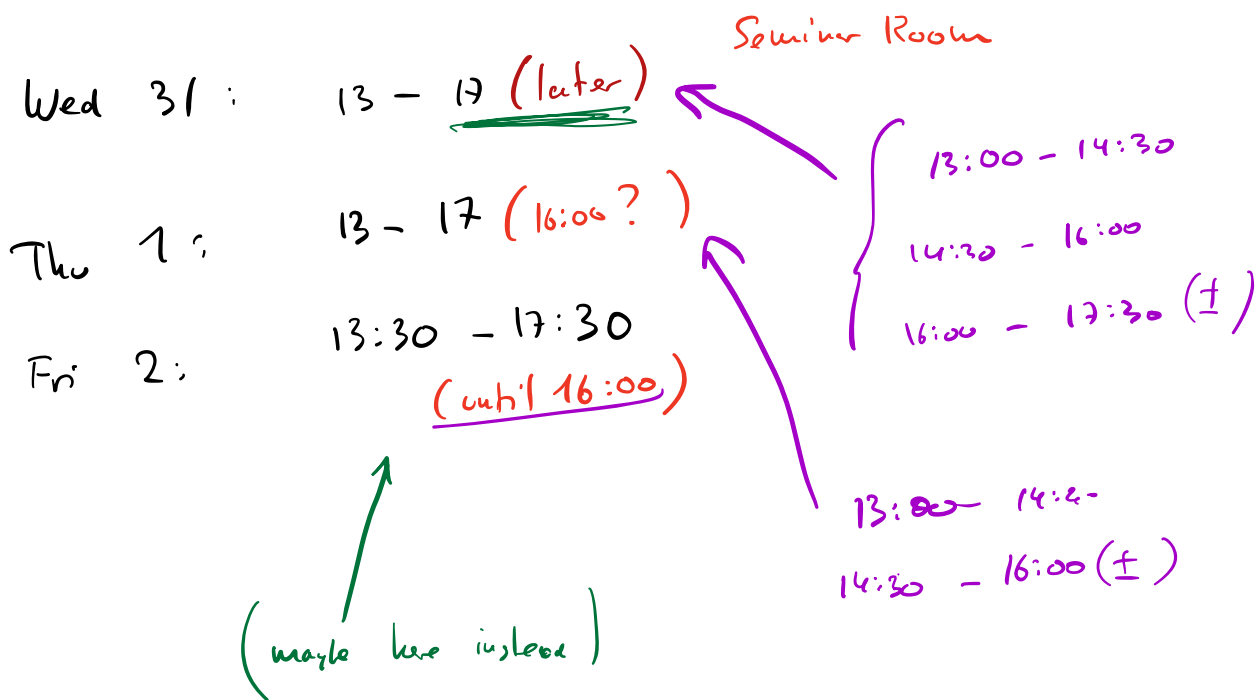 Seminar Room
Wed 31: 13 - 17 (later)
Thu 1: 13 - 17 (16:00? )
Fri 2: 13:30 - 17:30
(until 16:00)
13:00 - 14:30
14:30 - 16:00
16:00 - 17:30 (±)
13:00 -
14:30 - 16:00 (±)
(maybe here instead)